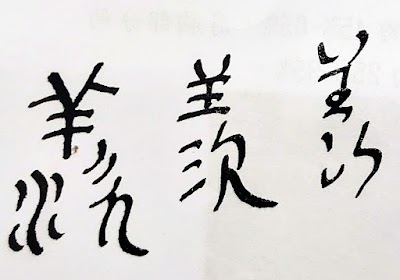 羨 羨 羨